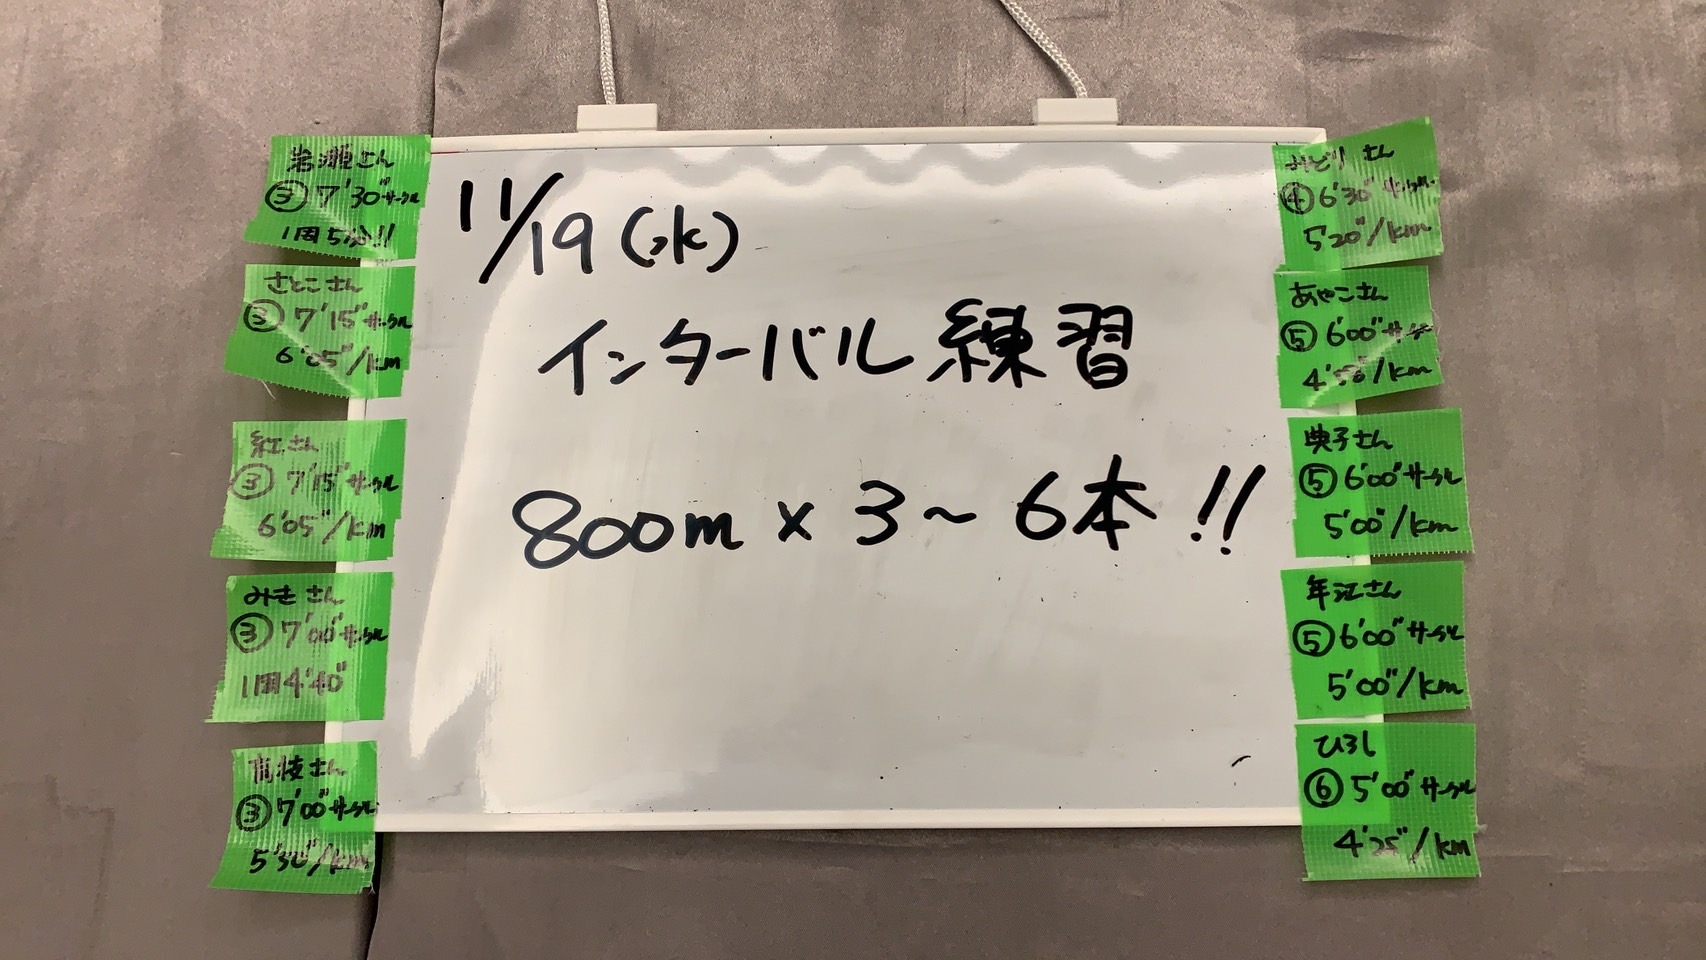 11/19(水)
インターバル練習
800m × 3〜6本!!
岩瀬さん
③ 7'30"サークル
1周5分!!
さとこさん
③ 7'15"サークル
6'05"/km
紅さん
③ 7'15"サークル
6'05"/km
みきさん
③ 7'00"サークル
1周4'40"
さん
③ 7'00"サークル
5'30"/km
みどりさん
④ 6'30"サークル
5'20"/km
あやこさん
⑤ 6'00"サークル
/km
典子さん
⑤ 6'00"サークル
5'00"/km
年江さん
⑤ 6'00"サークル
5'00"/km
ひろし
⑥ 5'00"サークル
4'25"/km